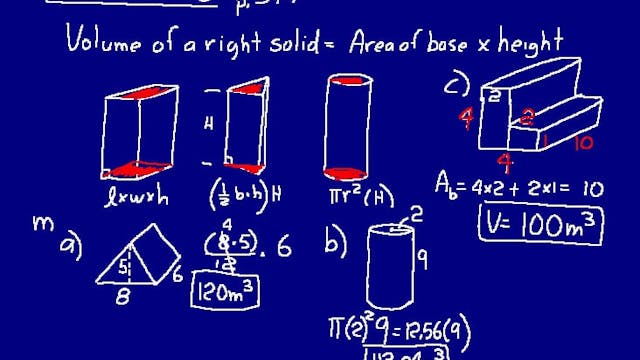 Volume of a right solid = Area of base x height
H
l x w x h
(1/2 b·h)H
πr²(H)
c)
2
4
2
1
10
4
A_b = 4x2 + 2x1 = 10
V = 100m³
m
a)
5
8
6
4
(8·5)/2 · 6
120m³
b)
2
9
π(2)²9 = 12.56(9)